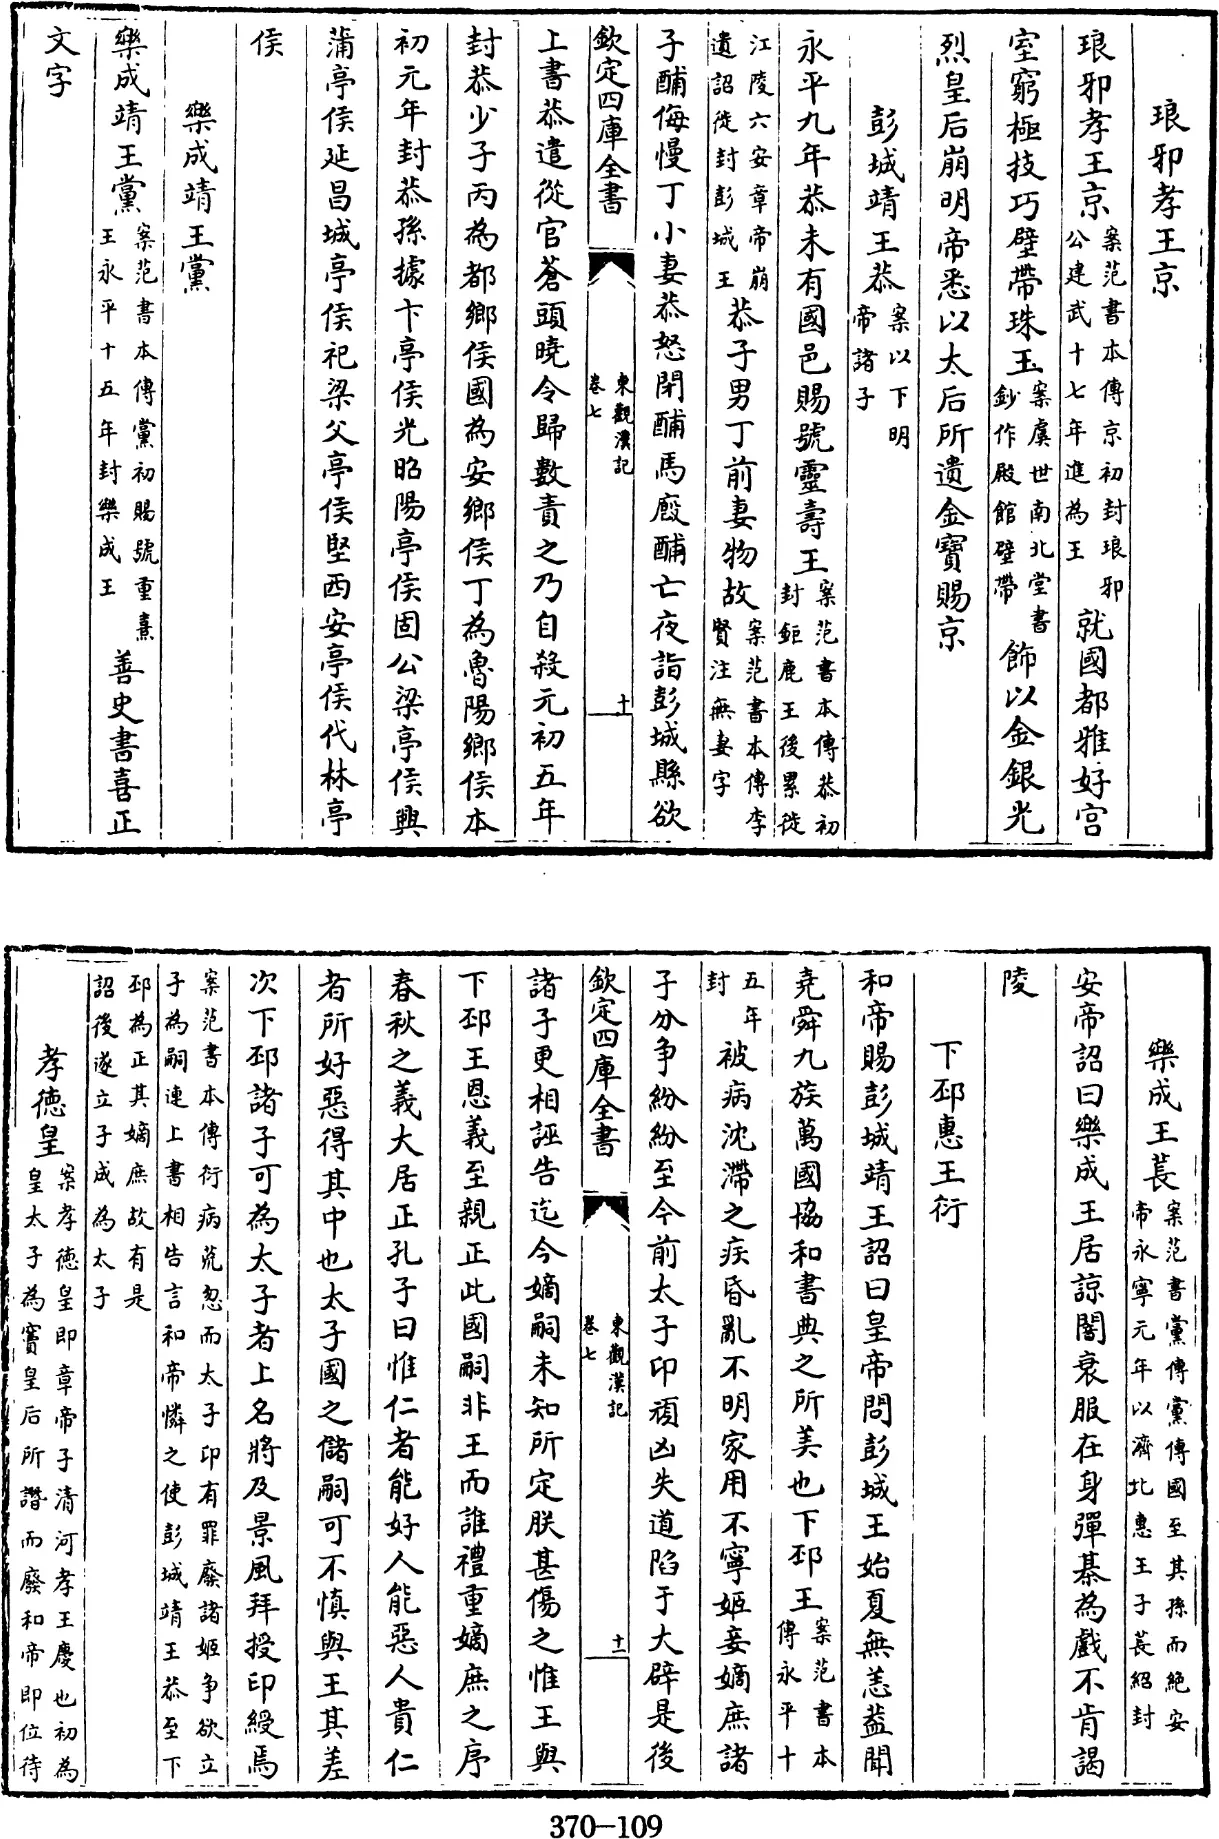 琅邪孝王京
琅邪孝王京案范書本傳京初封琅邪公建武十七年進為王就國都雅好宮
室窮極技巧壁帶珠玉案虞世南北堂書鈔作殿館壁帶飾以金銀光
烈皇后崩明帝悉以太后所遺金寶賜京
彭城靖王恭案以下明帝諸子
永平九年恭未有國邑賜號靈壽王案范書本傳恭初封鉅鹿王後累徙
江陵六安章帝崩遺詔徙封彭城王恭子男丁前妻物故案范書本傳李賢注無妻字
子酺侮慢丁小妻恭怒閉酺馬廄酺亡夜詣彭城縣欲
欽定四庫全書
東觀漢記
卷七
十
上書恭遣從官蒼頭曉令歸數責之乃自殺元初五年
封恭少子丙為都鄉侯國為安鄉侯丁為魯陽鄉侯本
初元年封恭孫據卞亭侯光昭陽亭侯固公梁亭侯興
蒲亭侯延昌城亭侯祀梁父亭侯堅西安亭侯代林亭
侯
樂成靖王黨
樂成靖王黨案范書本傳黨初賜號重熹王永平十五年封樂成王善史書喜正
文字
樂成王萇案范書黨傳黨傳國至其孫而絶安帝永寧元年以濟北惠王子萇紹封
安帝詔曰樂成王居諒闇衰服在身彈棊為戲不肯謁
陵
下邳惠王衍
和帝賜彭城靖王詔曰皇帝問彭城王始夏無恙葢聞
堯舜九族萬國協和書典之所美也下邳王案范書本傳永平十
五年封被病沈滯之疾昏亂不明家用不寧姬妾嫡庶諸
子分争紛紛至今前太子卬頑凶失道陷于大辟是後
欽定四庫全書
東觀漢記
卷七
十一
諸子更相誣告迄今嫡嗣未知所定朕甚傷之惟王與
下邳王恩義至親正此國嗣非王而誰禮重嫡庶之序
春秋之義大居正孔子曰惟仁者能好人能惡人貴仁
者所好惡得其中也太子國之儲嗣可不慎與王其差
次下邳諸子可為太子者上名將及景風拜授印綬焉
案范書本傳衍病荒忽而太子卬有罪廢諸姬争欲立子為嗣連上書相告言和帝憐之使彭城靖王恭至下
邳為正其嫡庶故有是詔後遂立子成為太子
孝德皇案孝德皇即章帝子清河孝王慶也初為皇太子為竇皇后所譖而廢和帝即位待
370—109